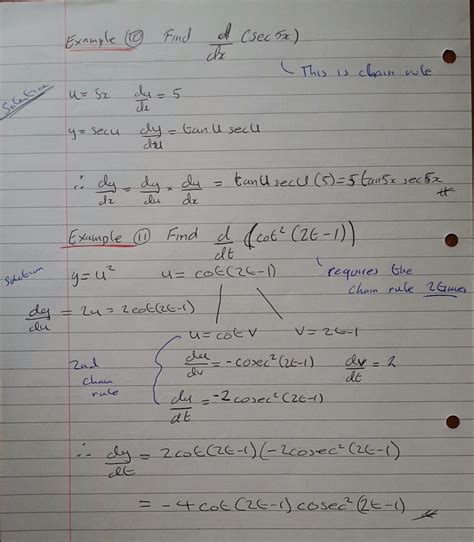 Example ⑩ Find d/dx (sec 5x)
This is chain rule
Solution
u = 5x du/dx = 5
y = sec u dy/du = tan u sec u
∴ dy/dx = dy/du × du/dx = tan u sec u (5) = 5 tan 5x sec 5x #
Example ⑪ Find d/dt (cot² (2t-1))
requires the
chain rule 2 times
Solution
y = u² u = cot(2t-1)
dy/du = 2u = 2cot(2t-1)
u = cot v v = 2t-1
2nd
chain
rule
du/dv = -cosec² (2t-1) dv/dt = 2
du/dt = -2cosec² (2t-1)
∴ dy/dt = 2cot(2t-1)(-2cosec² (2t-1)
= -4cot(2t-1)cosec² (2t-1) #